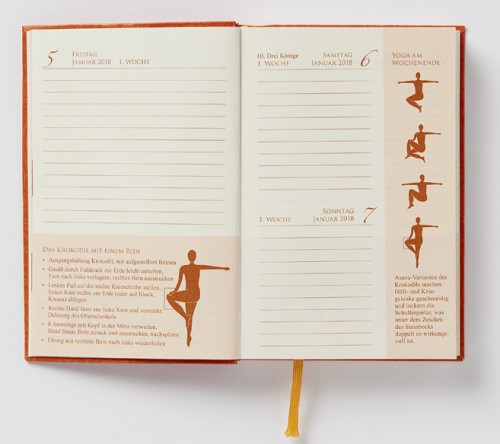 5
FREITAG
JANUAR 2018 1. WOCHE
DAS KROKODIL MIT EINEM BEIN
• Ausgangshaltung Krokodil, mit aufgestellten Beinen
• Gesäß durch Fußdruck zur Erde leicht anheben,
nach links verlagern, rechtes Bein ausstrecken
• Linken Fuß auf die rechte Kniescheibe stellen,
linkes Knie rechts zur Erde (oder auf Block,
Kissen) ablegen
• Rechte Hand liegt am linken Knie und verstärkt
Dehnung des Oberschenkels
• 8 Atemzüge mit Kopf in der Mitte verweilen,
Hand lösen, Bein zurück und ausstrecken, nachspüren
• Übung mit rechtem Bein nach links wiederholen
Hl. Drei Könige
1. WOCHE
SAMSTAG
JANUAR 2018
6
1. WOCHE
SONNTAG
JANUAR 2018
7
YOGA AM
WOCHENENDE
Asana-Varianten des
Krokodils machen
Hüft- und Knie-
gelenke geschmeidig
und lockern die
Schulterpartie, was
unter dem Zeichen
des Steinbocks
doppelt so wirkungs-
voll ist.